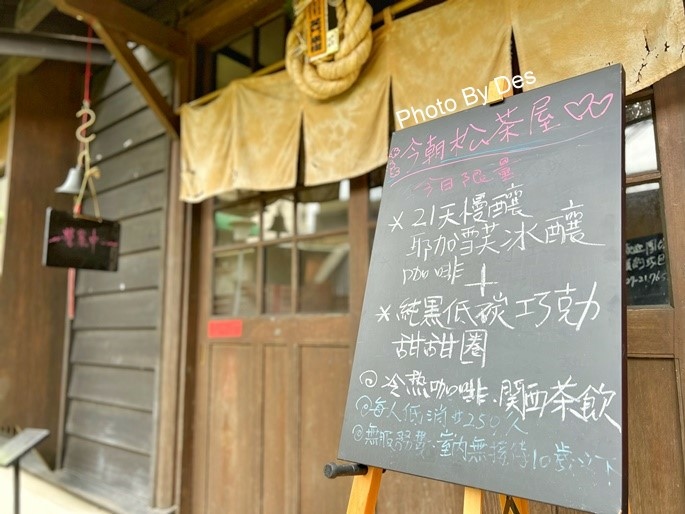 Photo By Des
今朝松茶屋
今日限量
※21天慢釀
耶加雪芙冰釀
咖啡+
※純黑低碳巧克力
甜甜圈
◎冷热咖啡、関西茶飲
◎每人低消$250/人
◎無服務費:室內無接待10歲以下
營業中